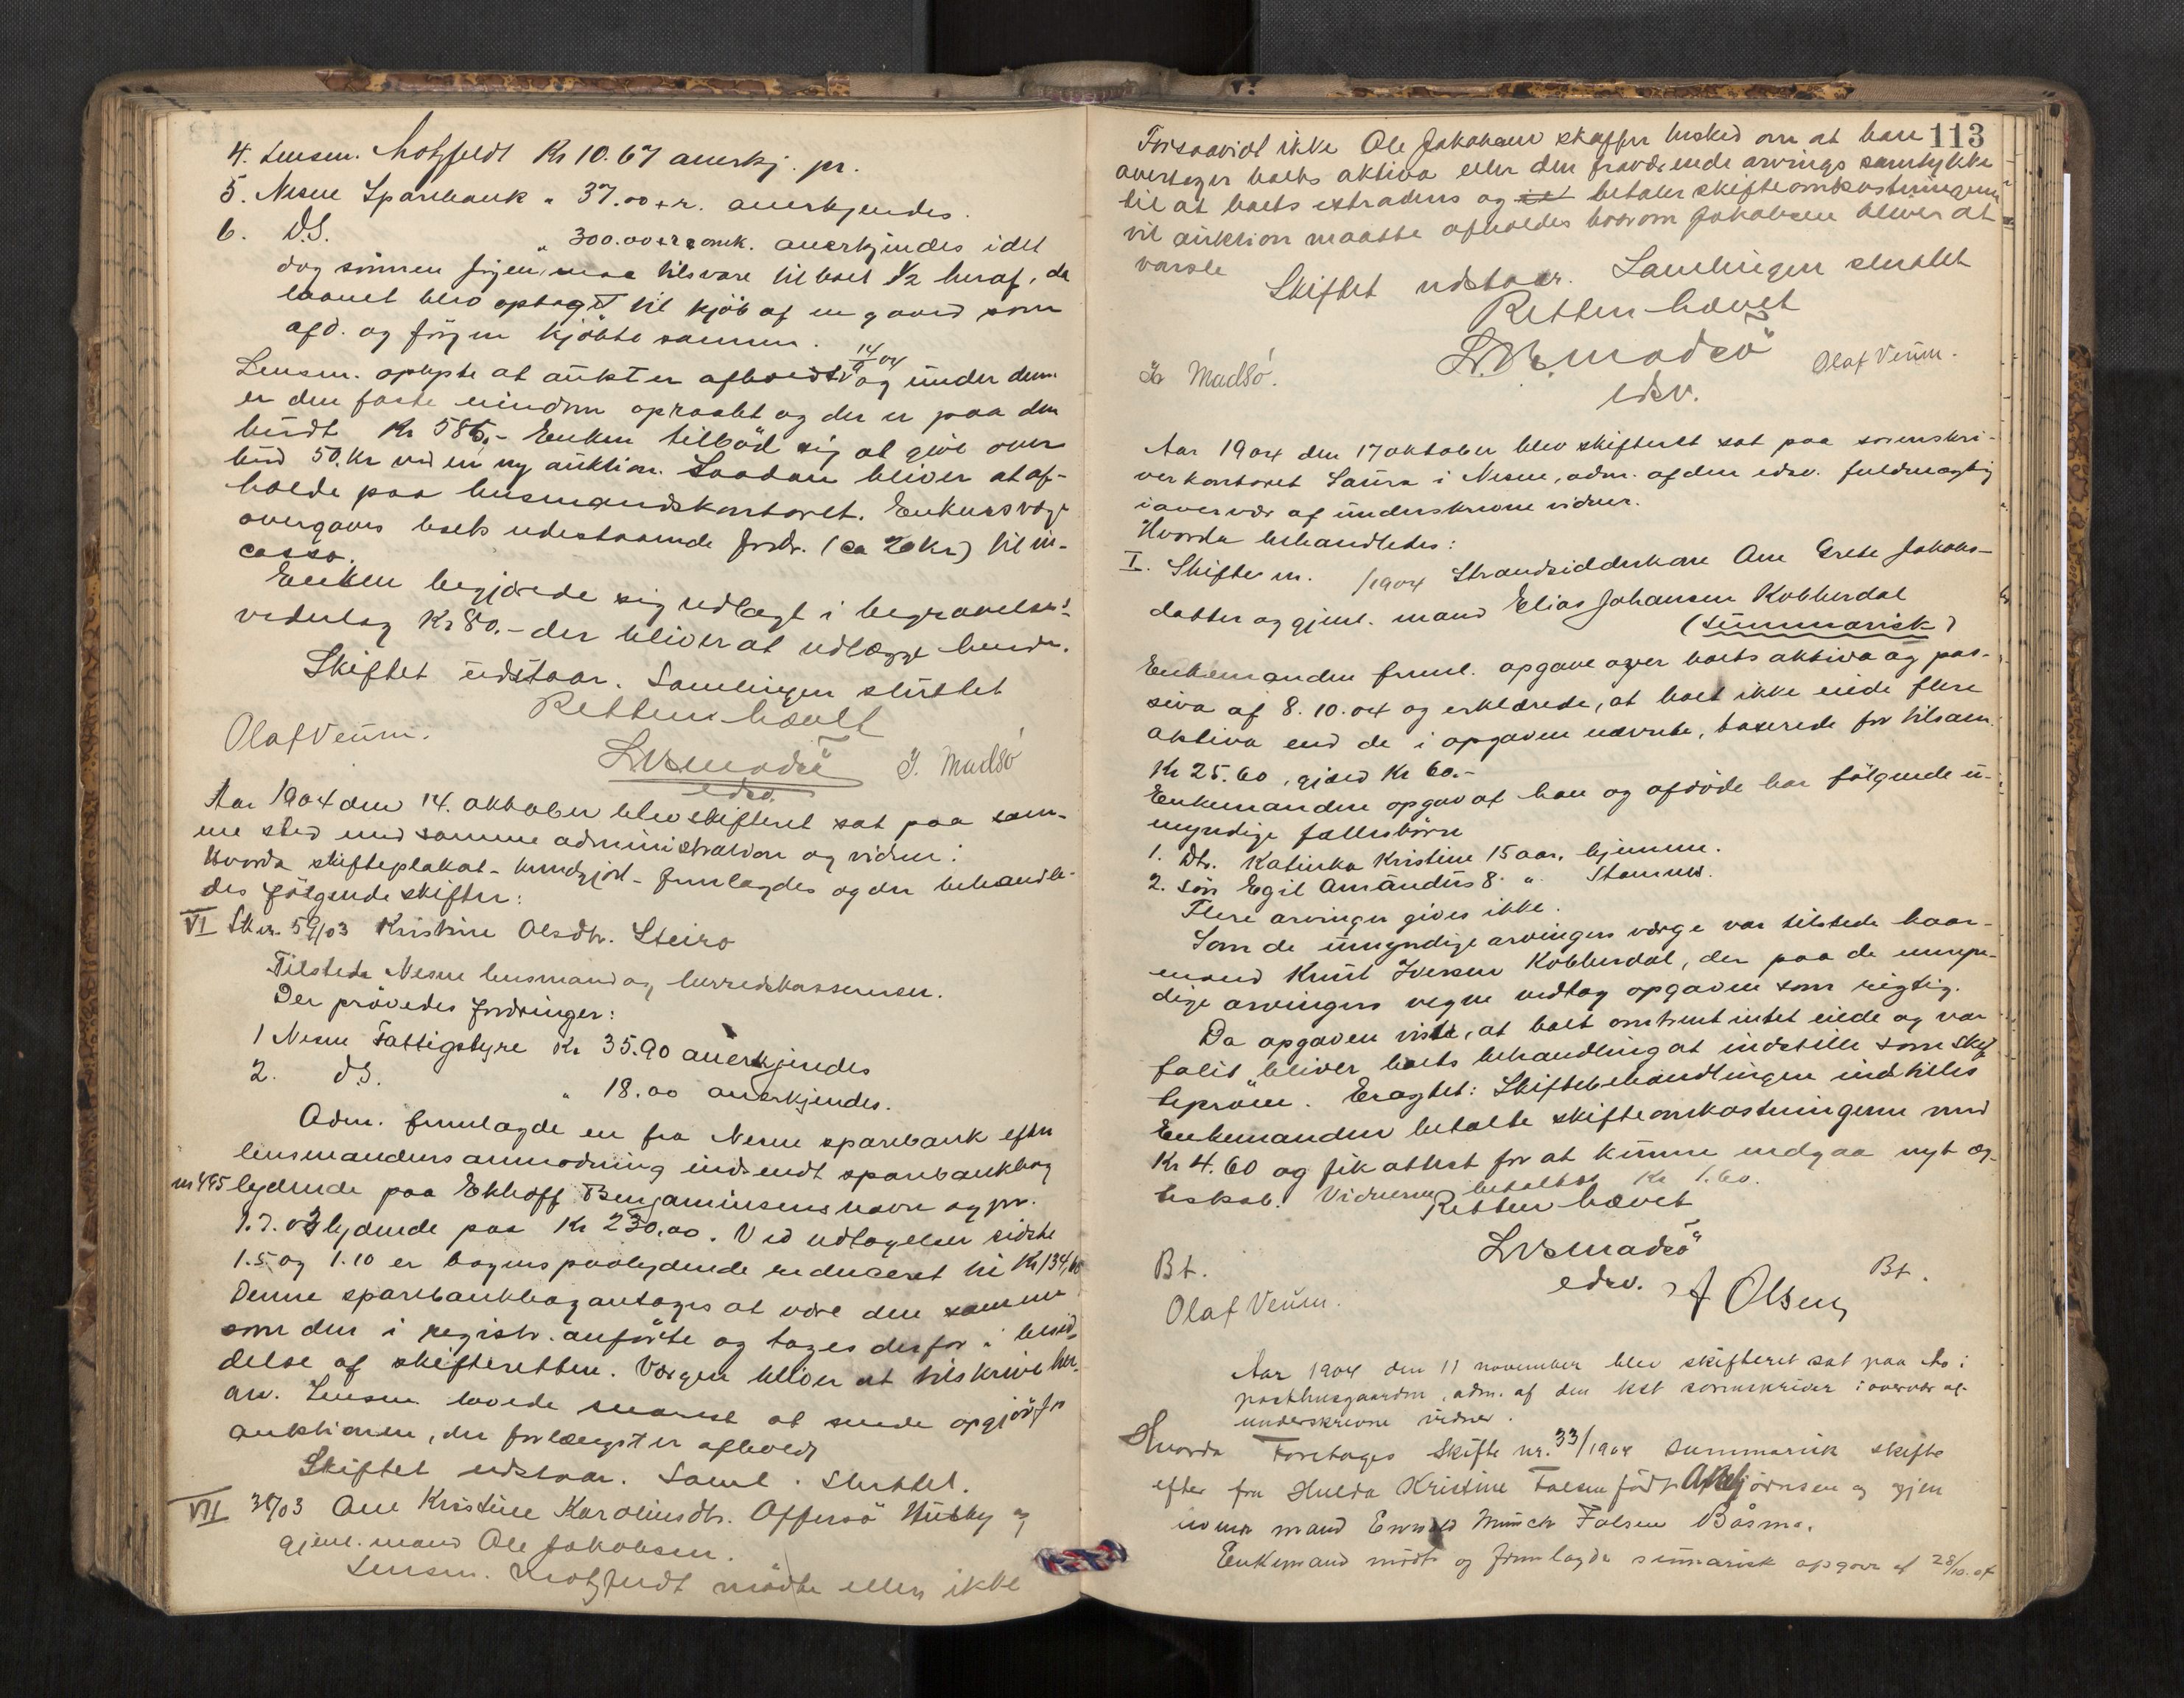 4. Lensm. Motzfeldt Kr 10.67 anerkj. pr.
5. Nesne Sparebank " 37.00 + r. anerkjendes.
6. DS. " 300.00 + r & omk. anerkjendes idet
dog sønnen Jørgen maa tilsvare til boet 1/2 heraf, da
laanet blev optaget til kjøb af en gaard som
afd. og Jørgen kjøbte sammen.
Lensm. oplyste at auktion er afholdt 14/9 04 og under denne
er den faste eiendom opraabt og der er paa den
budt Kr 585,- Enken tilbød sig at give over
bud 50. kr ved en ny auktion. Saadan bliver at af-
holde paa lensmandskontoret. Enkens værge
overgaves boets udestaaende fordr. (ca 20 kr) til in-
casso.
Enken begjærede sig udlagt i begravelses-
vederlag Kr 80.- der bliver at udlægge hende.
Skiftet udstaar. Samlingen sluttet
Retten hævet
Olaf Veum. J. Madsø
edsv.
Aar 1904 den 14. oktober blev skifteret sat paa sam-
me sted med samme administration og vidner:
Hvorda skifteplakat - kundgjort - fremlagdes og der behandle-
des følgende skifter:
VI Sk nr. 59/03 Kristine Olsdtr. Steiro
Tilstede Nesne lensmand og herredskassereren.
Der prøvedes fordringer:
1 Nesne Fattigstyre Kr 35.90 anerkjendes
2. dS. " 18.00 anerkjendes.
Adm. fremlagde en fra Nesne sparebank efter
lensmandens anmodning indsendt sparebankbog
nr 495 lydende paa Ekhoff Benjaminsens navn og pr.
1.7.03 lydende paa Kr 230.00. Ved udtagelser sidste
1.5 og 1.10 er bogens paalydende reduceret til Kr 134,60
Denne sparebankbog antages at være den samme
som den i registr. anførte og tages derfor i besid-
delse af skifteretten. Værgen bliver at tilskrive her-
om. Lensm. lovede snarest at sende opgjør for
auktionen, der forlængst er afholdt
Skiftet udstaar. Saml. sluttet.
VII 38/03 Ane Kristine Karoliusdtr. Offersø Husby og
gjenl. mand Ole Jakobsen.
Lensm. Motzfeldt mødte ellers ikke
113
Forsaavidt ikke Ole Jakobsen skaffer besked om at han
overtager boets aktiva eller den fraværende arvings samtykke
til at boets extraderes og betaler skifteomkostningerne
vil auktion maatte afholdes hvorom Jakobsen bliver at
varsle
Skiftet udstaar. Samlingen sluttet
Retten hævet
J. Madsø. Olaf Veum.
edsv.
Aar 1904 den 17 oktober blev skifteret sat paa sorenskri-
verkontoret Saura i Nesne, adm. af den edsv. fuldmægtig
i overvær af underskrevne vidner.
Hvorda behandledes:
I. Skifte nr. /1904 Strandsidderkone Ane Grete Jakobs-
datter og gjenl. mand Elias Johansen Kobberdal
(summarisk)
Enkemanden freml. opgave over boets aktiva og pas-
siva af 8.10.04 og erklærede, at boet ikke eiede flere
aktiva end de i opgaven nævnte, taxerede for tilsam.
Kr 25.60, gjæld Kr 60.-
Enkemanden opgav at han og afdøde har følgende u-
myndige fællesbørn
1. Dtr. Katinka Kristine 15 aar, hjemme.
2. Søn Egil Amandus 8 " Stamnes.
Flere arvinger gives ikke.
Som de umyndige arvingers værge var tilstede baar-
mand Knut Iversen Kobberdal, der paa de umyn-
dige arvingers vegne vedtog opgaven som rigtig.
Da opgaven viste, at boet omtrent intet eiede og var
falit bliver boets behandling at indstille som skif-
teprøve. Eragtet: Skiftebehandlingen indstilles
Enkemanden betalte skifteomkostningerne med
Kr 4.60 og fik attest for at kunne indgaa nyt æg-
teskab. Vidnerne betaltes Kr 1.60.
Retten hævet
Bt. Bt.
edsv.
Olaf Veum. A Olsen
Aar 1904 den 11 november blev skifteret sat paa Mo i
posthusgaarden, adm. af den kst sorenskriver i overvær af
underskrevne vidner.
Hvorda Foretages Skifte nr. 33/1904 Summarisk skifte
efter fru Hulda Kristine Falsen født og gjen
levende mand Enwold Munch Falsen Båsmo.
Enkemand mødte og fremlagde summarisk opgave af 28/10.04